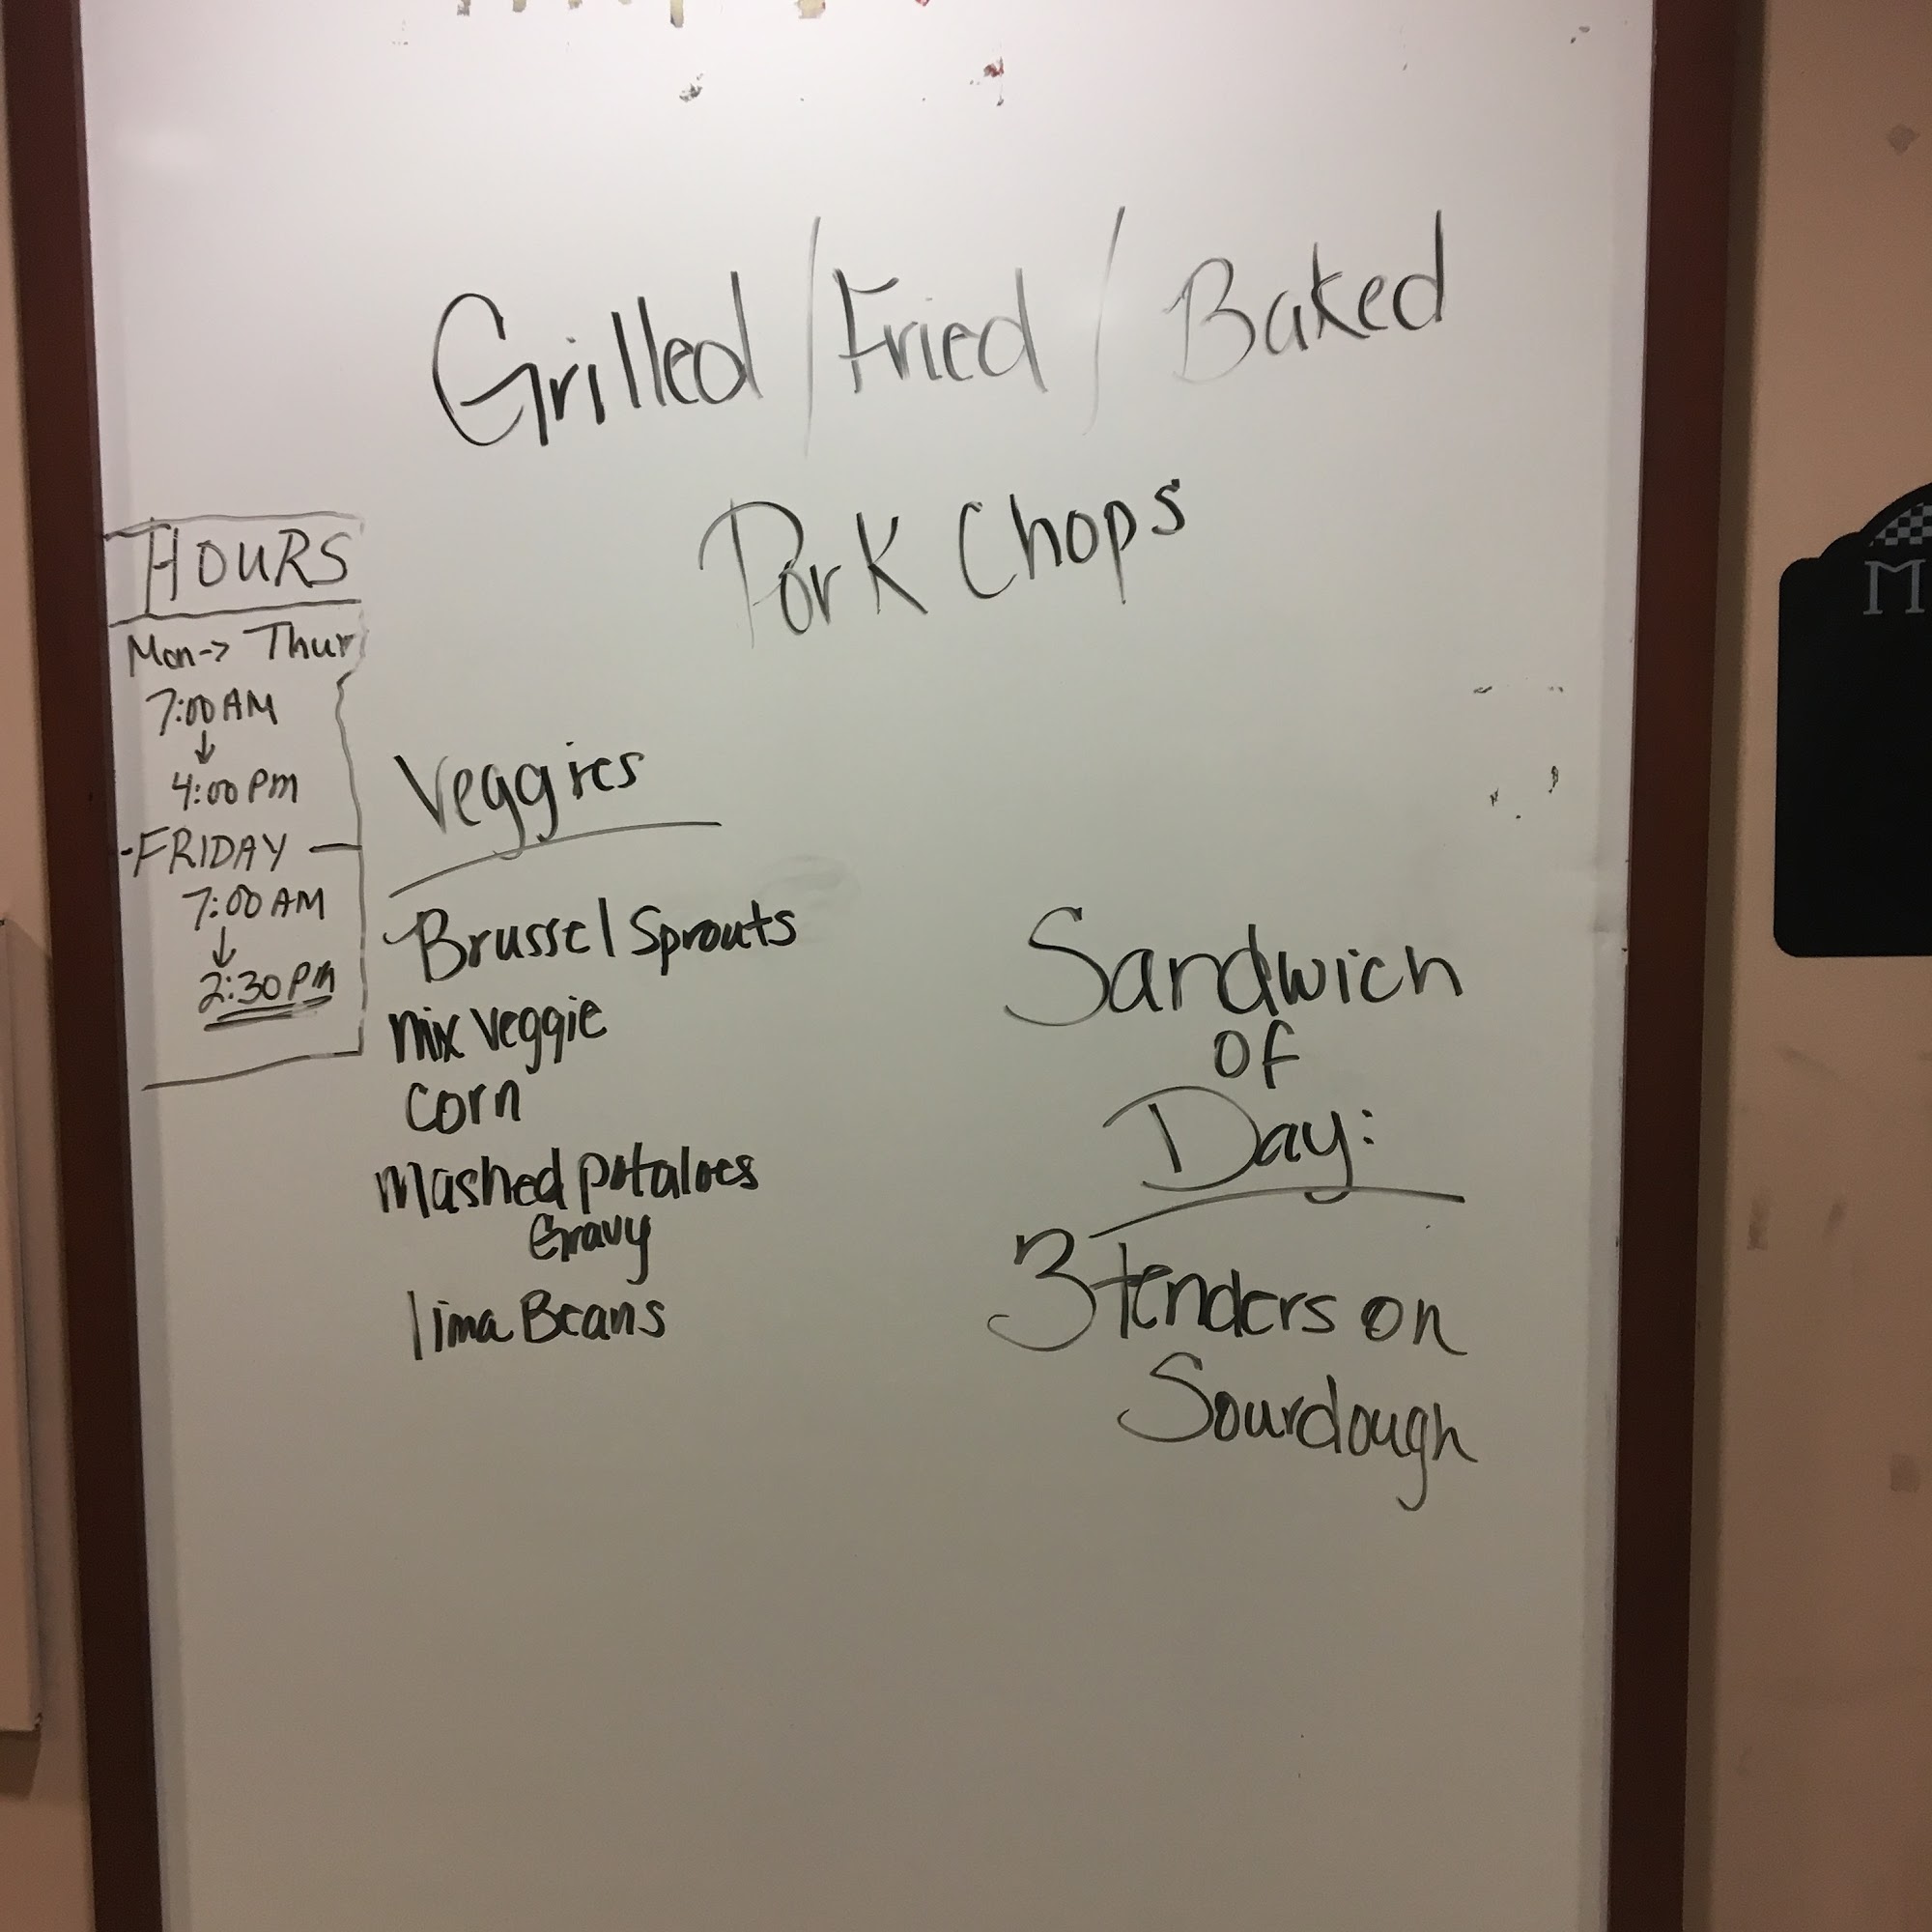 Grilled / Fried / Baked
Pork Chops
HOURS
Mon-> Thur
7:00 AM
↓
4:00 PM
-FRIDAY-
7:00 AM
↓
2:30 PM
Veggies
Brussel Sprouts
mix veggie
corn
mashed potatoes
Gravy
lima Beans
Sandwich
of
Day:
3 tenders on
Sourdough
M